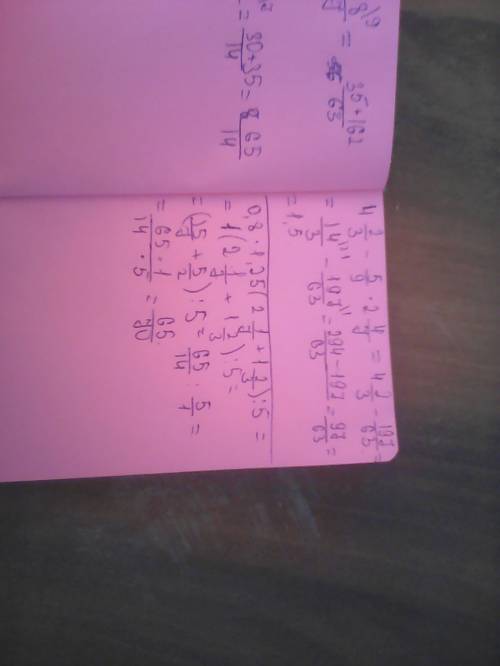 = 35+162/63
= 30+35/14 = 65/14
4 2/3 - 5/9 · 2 4/7 = 4 2/3 - 197/63 =
= 14/3 - 197/63 = 294-197/63 = 97/63 =
= 1,5
0,8 · 1,25(2 1/7 + 1 2/3):5 =
= 1(2 1/7 + 1 2/3):5=
= (15/7 + 5/2):5 = 65/14 : 5/1 =
= 65·1/14·5 = 65/70